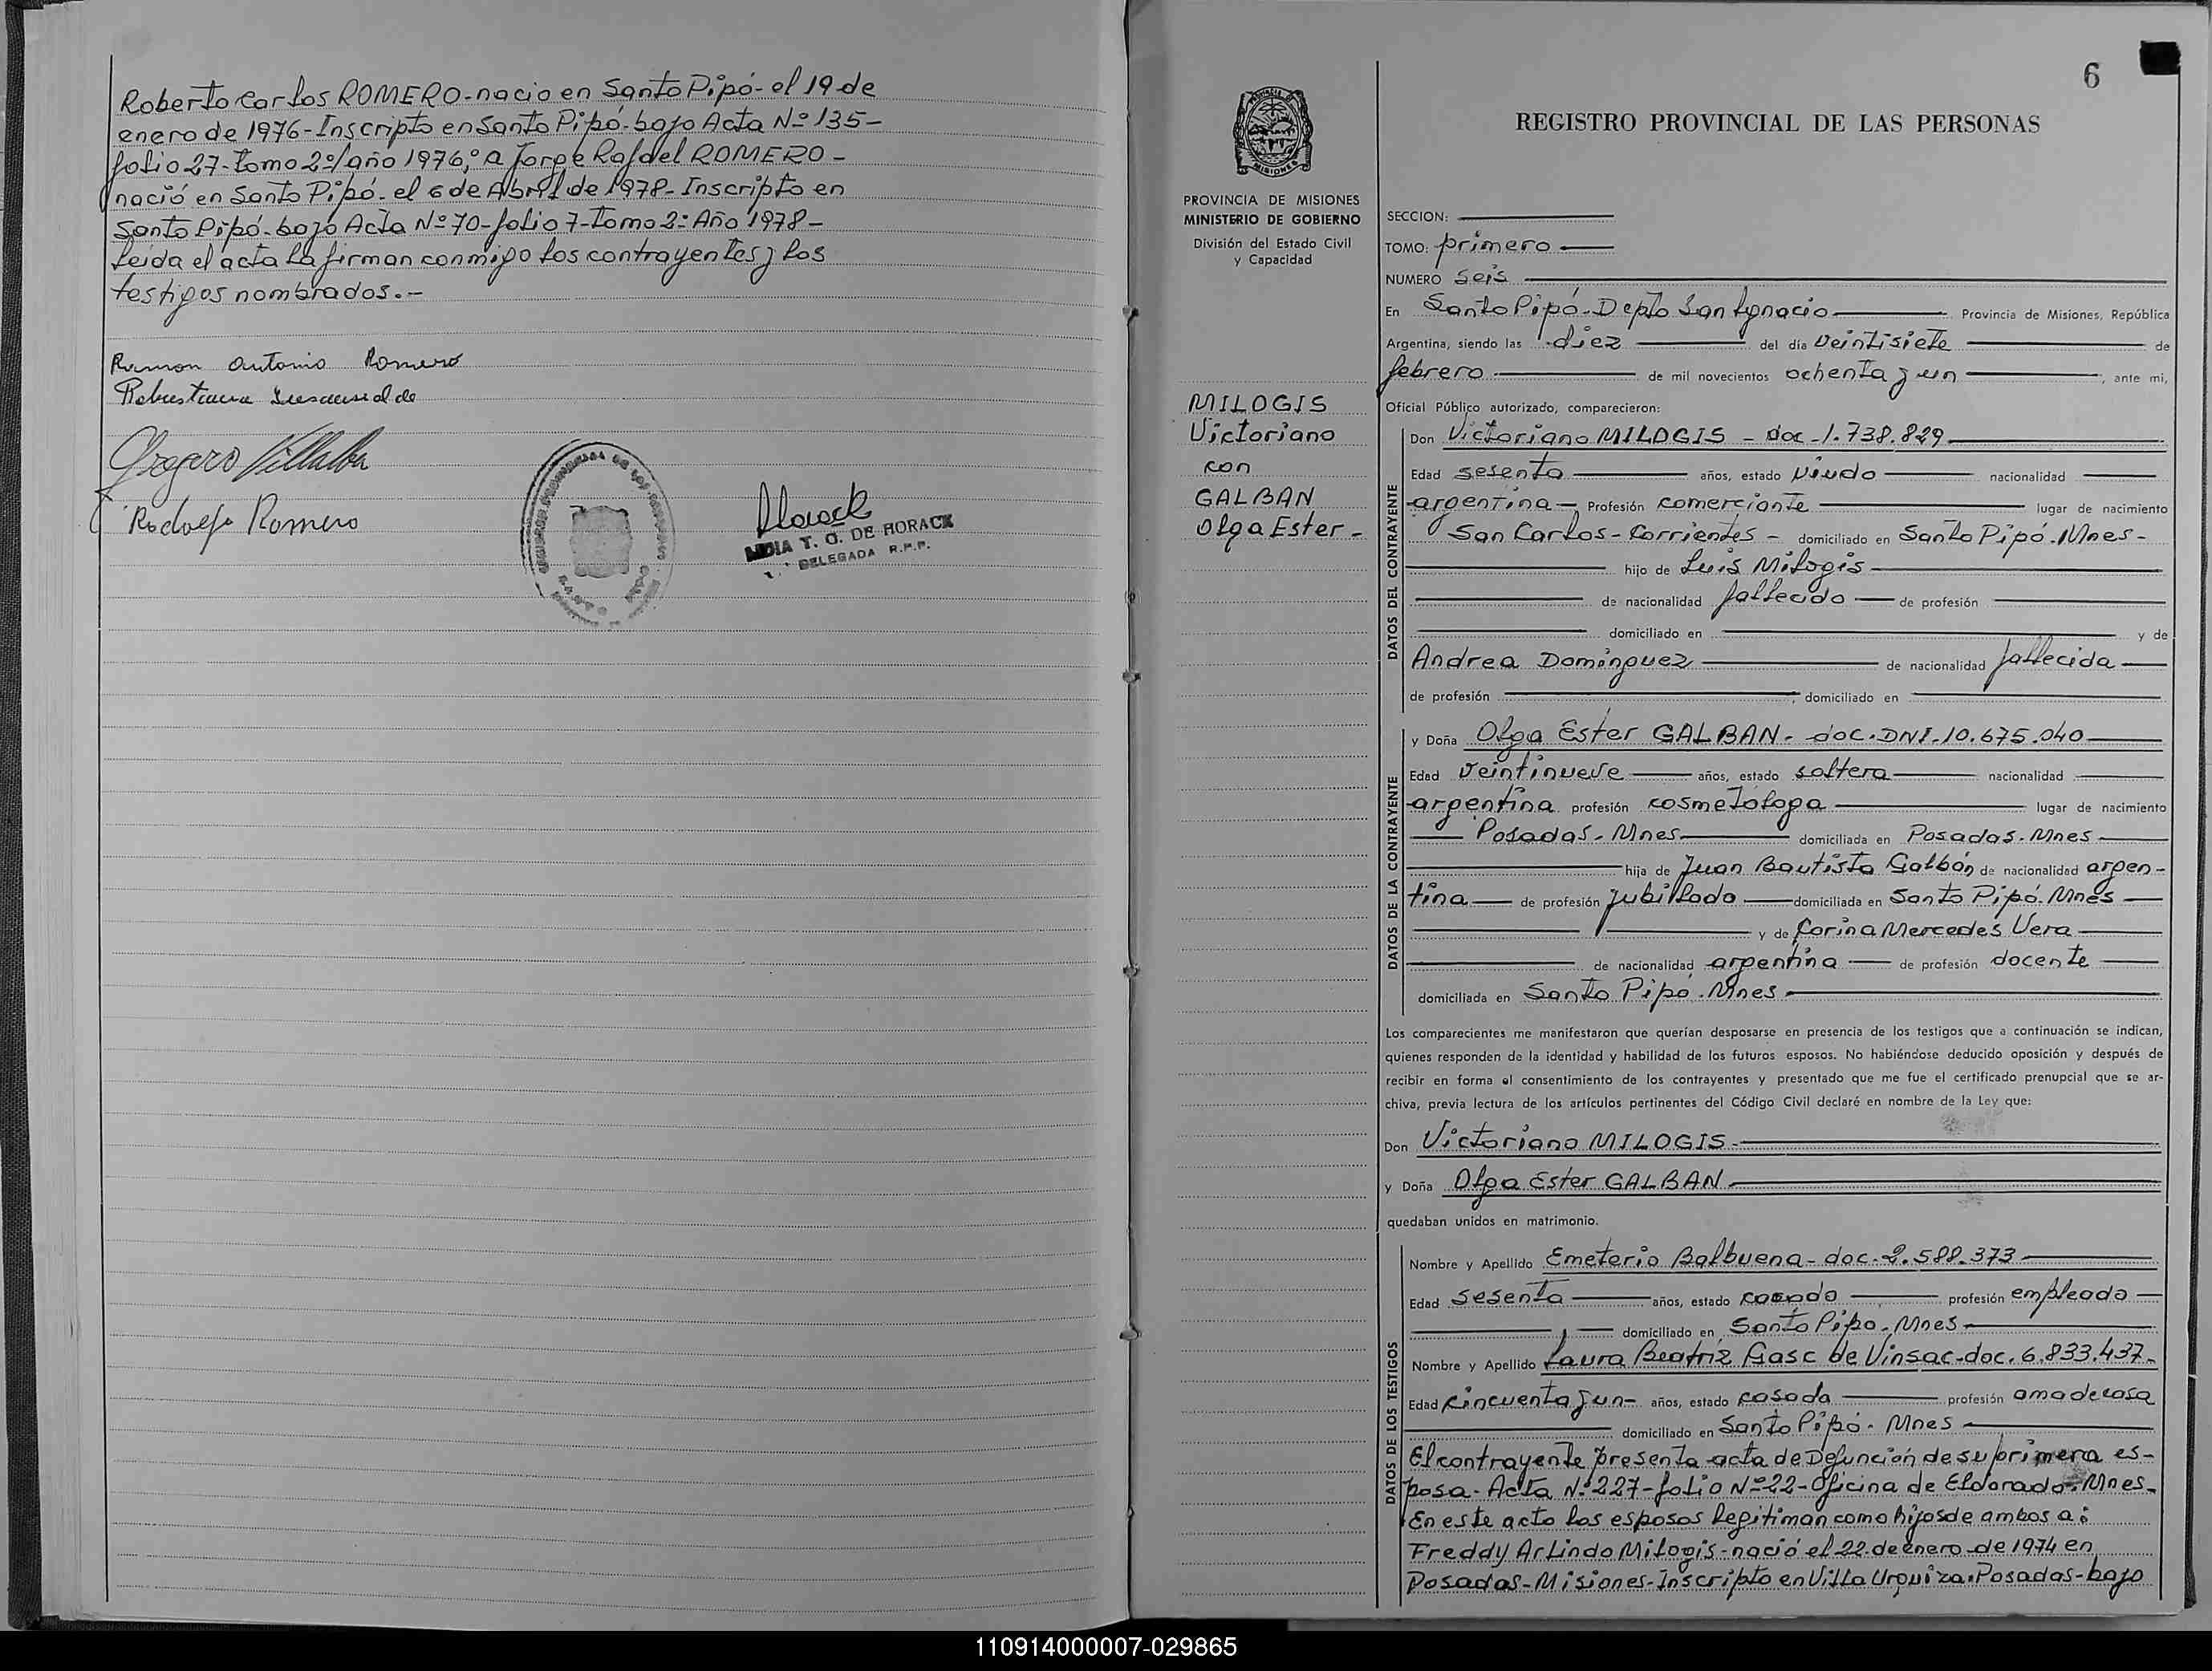 Roberto Carlos ROMERO-nacio en Santo Pipó-el 19 de
enero de 1976-Inscripto en Santo Pipó-bajo Acta Nº 135-
folio 27-tomo 2º/año 1976, a Jorge Rafael ROMERO-
nació en Santo Pipó-el 6 de Abril de 1978-Inscripto en
Santo Pipó-bajo Acta Nº 70-folio 7-tomo 2º Año 1978-
leída el acta la firman conmigo los contrayentes y los
testigos nombrados.-
Ramon Antonio Romero
Villalba
Rodolfo Romero
LIDIA T. O. DE HORACK
DELEGADA R.P.P.
6
REGISTRO PROVINCIAL DE LAS PERSONAS
MISIONES
PROVINCIA DE MISIONES
MINISTERIO DE GOBIERNO
División del Estado Civil
y Capacidad
MILOGIS
Victoriano
con
GALBAN
Olga Ester-
SECCION:
TOMO: primero
NUMERO seis
En Santo Pipó-Depto San Ignacio Provincia de Misiones, República
Argentina, siendo las diez del día veintisiete de
febrero de mil novecientos ochenta y un, ante mi,
Oficial Público autorizado, comparecieron:
DATOS DEL CONTRAYENTE
Don Victoriano MILOGIS - doc-1.738.829
Edad sesenta años, estado viudo nacionalidad
argentina Profesión comerciante lugar de nacimiento
San Carlos-Corrientes- domiciliado en Santo Pipó.Mnes-
hijo de Luis Milogis
de nacionalidad fallecido de profesión
domiciliado en y de
Andrea Dominguez de nacionalidad fallecida
de profesión , domiciliado en
DATOS DE LA CONTRAYENTE
y Doña Olga Ester GALBAN-doc.DNI.10.675.040
Edad veintinueve años, estado soltera nacionalidad
argentina profesión cosmetóloga lugar de nacimiento
Posadas-Mnes domiciliada en Posadas.Mnes
hija de Juan Bautista Galbán de nacionalidad argen-
tina de profesión jubilado domiciliada en Santo Pipó.Mnes
y de Corina Mercedes Vera
de nacionalidad argentina de profesión docente
domiciliada en Santo Pipó.Mnes
Los comparecientes me manifestaron que querían desposarse en presencia de los testigos que a continuación se indican,
quienes responden de la identidad y habilidad de los futuros esposos. No habiéndose deducido oposición y después de
recibir en forma el consentimiento de los contrayentes y presentado que me fue el certificado prenupcial que se ar-
chiva, previa lectura de los artículos pertinentes del Código Civil declaré en nombre de la Ley que:
Don Victoriano MILOGIS
y Doña Olga Ester GALBAN
quedaban unidos en matrimonio.
DATOS DE LOS TESTIGOS
Nombre y Apellido Emeterio Balbuena-doc-2.588.373
Edad sesenta años, estado casado profesión empleado
domiciliado en Santo Pipo.Mnes
Nombre y Apellido Laura Beatriz Gasc de Vinsac-doc.6.833.437-
Edad cincuenta y un- años, estado casada profesión ama de casa
domiciliado en Santo Pipó-Mnes
El contrayente presenta acta de Defunción de su primera es-
posa-Acta Nº 227-folio Nº 22-Oficina de Eldorado-Mnes-
En este acto los esposos legitiman como hijos de ambos a:
Freddy Arlindo Milogis-nació el 22 de enero de 1974 en
Posadas-Misiones-Inscripto en Villa Urquiza.Posadas-bajo
110914000007-029865